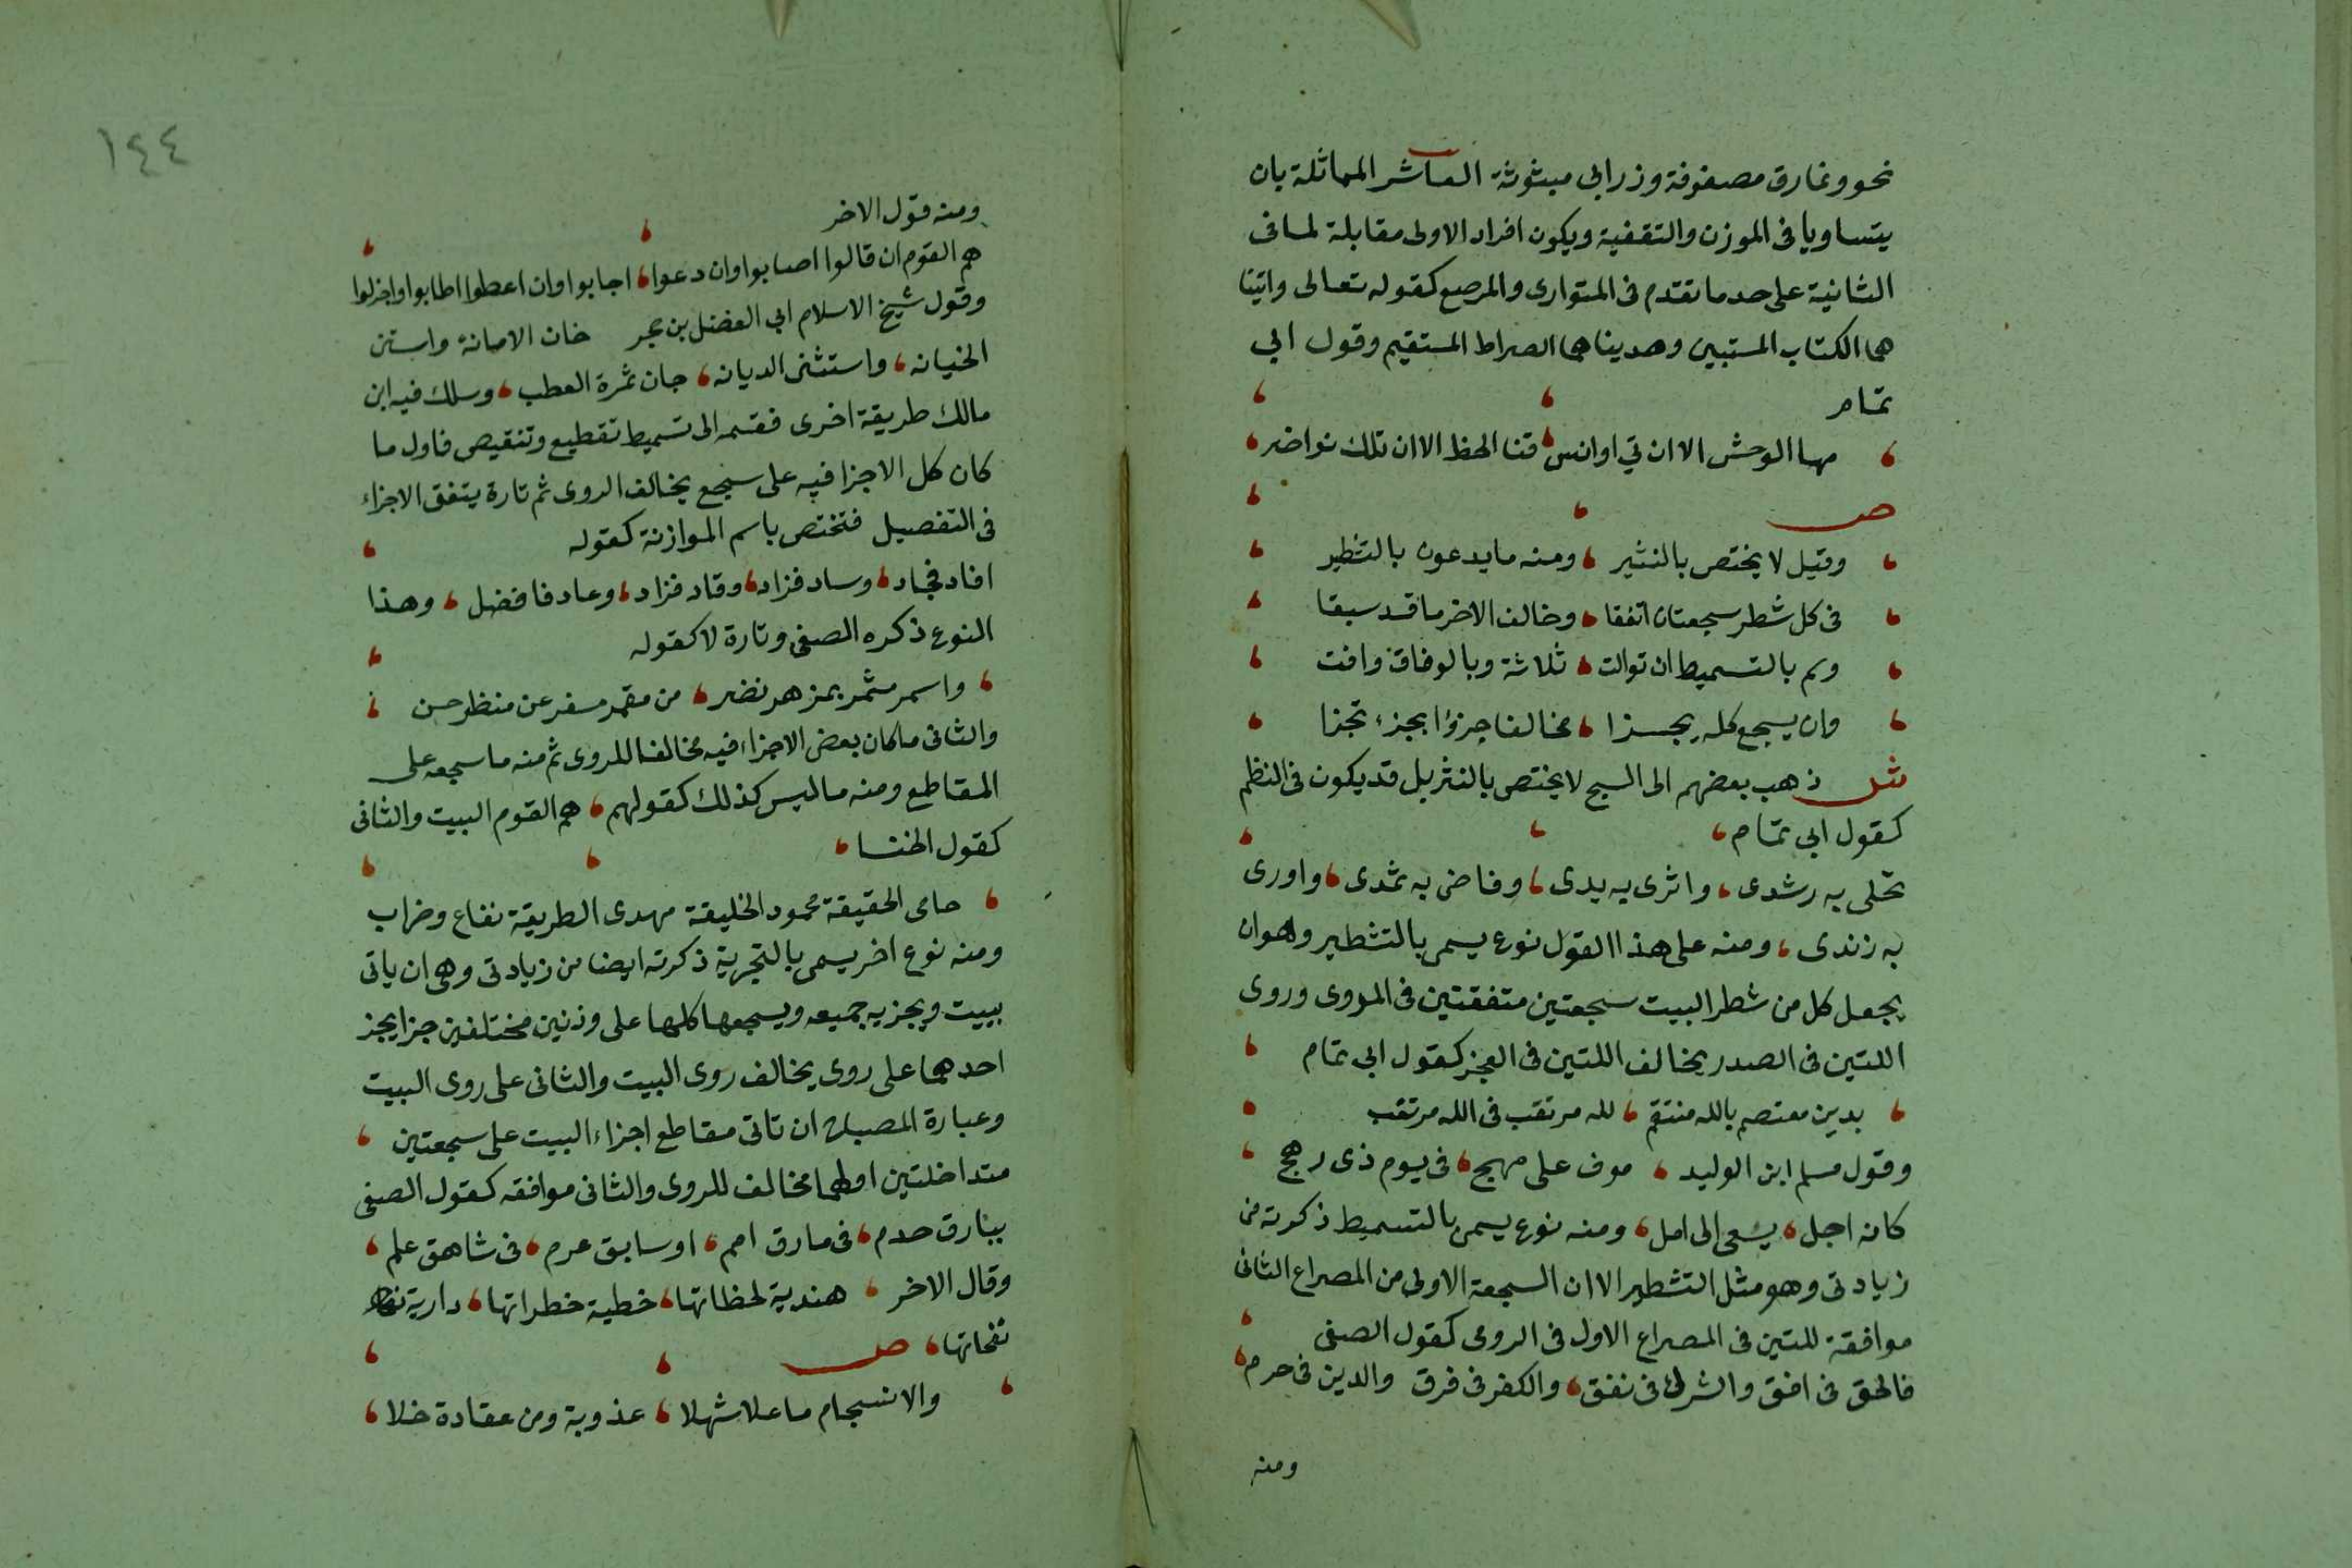 نحو ونمارق مصفوفة وزرابي مبثوثة العاشر المماثلة بان
يتساويا فى الموزن والتقفية ويكون افراد الاولى مقابلة لما فى
الثانية على حد ما تقدم فى المتوازى والمرصع كقوله تعالى واتينا
هما الكتاب المستبين وهديناهما الصراط المستقيم وقول ابي
تمام
مها الوحش الا ان تي اوانس قنا الخط الا ان تلك نواضر
ص
وقيل لا يختص بالنثير ومنه ما يدعون بالتشطير
فى كل شطر سجعتان اتفقا وخالف الاخر ما قد سبقا
وسم بالتسميط ان توالت ثلاثة وبالوفاق وافت
وان يسجع كله يجزا مخالفا جزؤا بجزء تجزا
ش ذهب بعضهم الى السجع لا يختص بالنثر بل قد يكون فى النظم
كقول ابي تمام
تحلى به رشدى واثرى به يدى وفاض به ثمدى واورى
به زندى ومنه على هذا القول نوع يسمى بالتشطير وهو ان
يجعل كل من شطر البيت سجعتين متفقتين فى الروى وروى
اللتين فى الصدر يخالف اللتين فى العجز كقول ابي تمام
بدين معتصم بالله منتقم لله مرتقب فى الله مرتقب
وقول مسلم ابن الوليد موف على مهج فى يوم ذى رهج
كانه اجل يسعى الى امل ومنه نوع يسمى بالتسميط ذكرته من
زيادتى وهو مثل التشطير الا ان السجعة الاولى من المصراع الثانى
موافقة للتين فى المصراع الاول فى الروى كقول الصفى
فالحق فى افق والشرك فى نفق والكفر فى فرق والدين فى حرم
ومنه
١٤٤
ومنه قول الاخر
هم القوم ان قالوا اصابوا وان دعوا اجابوا وان اعطوا اطابوا واجزلوا
وقول شيخ الاسلام ابي الفضل بن حجر خان الامانة واستن
الخيانه واستثنى الديانه جان ثمرة العطب وسلك فيه ابن
مالك طريقة اخرى فقسمه الى تسميط تقطيع وتنقيص فاول ما
كان كل الاجزا فيه على سجع يخالف الروى ثم تارة يتفق الاجزاء
فى التفصيل فتختص باسم الموازنة كقوله
افاد فجاد وساد فزاد وقاد فزاد وعاد فافضل وهذا
النوع ذكره الصفى وتارة لا كقوله
واسمر مثمر بمزهر نضر من مقمر مسفر عن منظر حسن
والثانى ما كان بعض الاجزاء فيه مخالفا للروى ثم منه ما سجعه على
المقاطع ومنه ما ليس كذلك كقولهم هم القوم البيت والثانى
كقول الخنسا
حامى الحقيقة محمود الخليقة مهدى الطريقة نفاع وضراب
ومنه نوع اخر يسمى بالتجزية ذكرته ايضا من زيادتى وهى ان ياتى
ببيت ويجزيه جميعه ويسجعها كلها على وزنين مختلفين جزا بجز
احدهما على روى يخالف روى البيت والثانى على روى البيت
وعبارة المصباح ان تاتى مقاطع اجزاء البيت على سجعتين
متداخلتين اولهما مخالف للروى والثانى موافقه كقول الصفى
ببارق حدم فى مارق امم اوسابق عرم فى شاهق علم
وقال الاخر هندية لحظاتها خطية خطراتها دارية
نفحاتها ص
والانسجام ما علا شهلا عذوبة ومن عقادة خلا